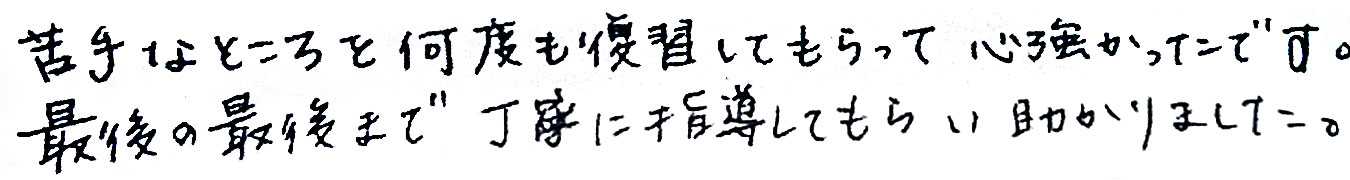 苦手なところを何度も復習してもらって心強かったです。
最後の最後まで丁寧に指導してもらい助かりました。